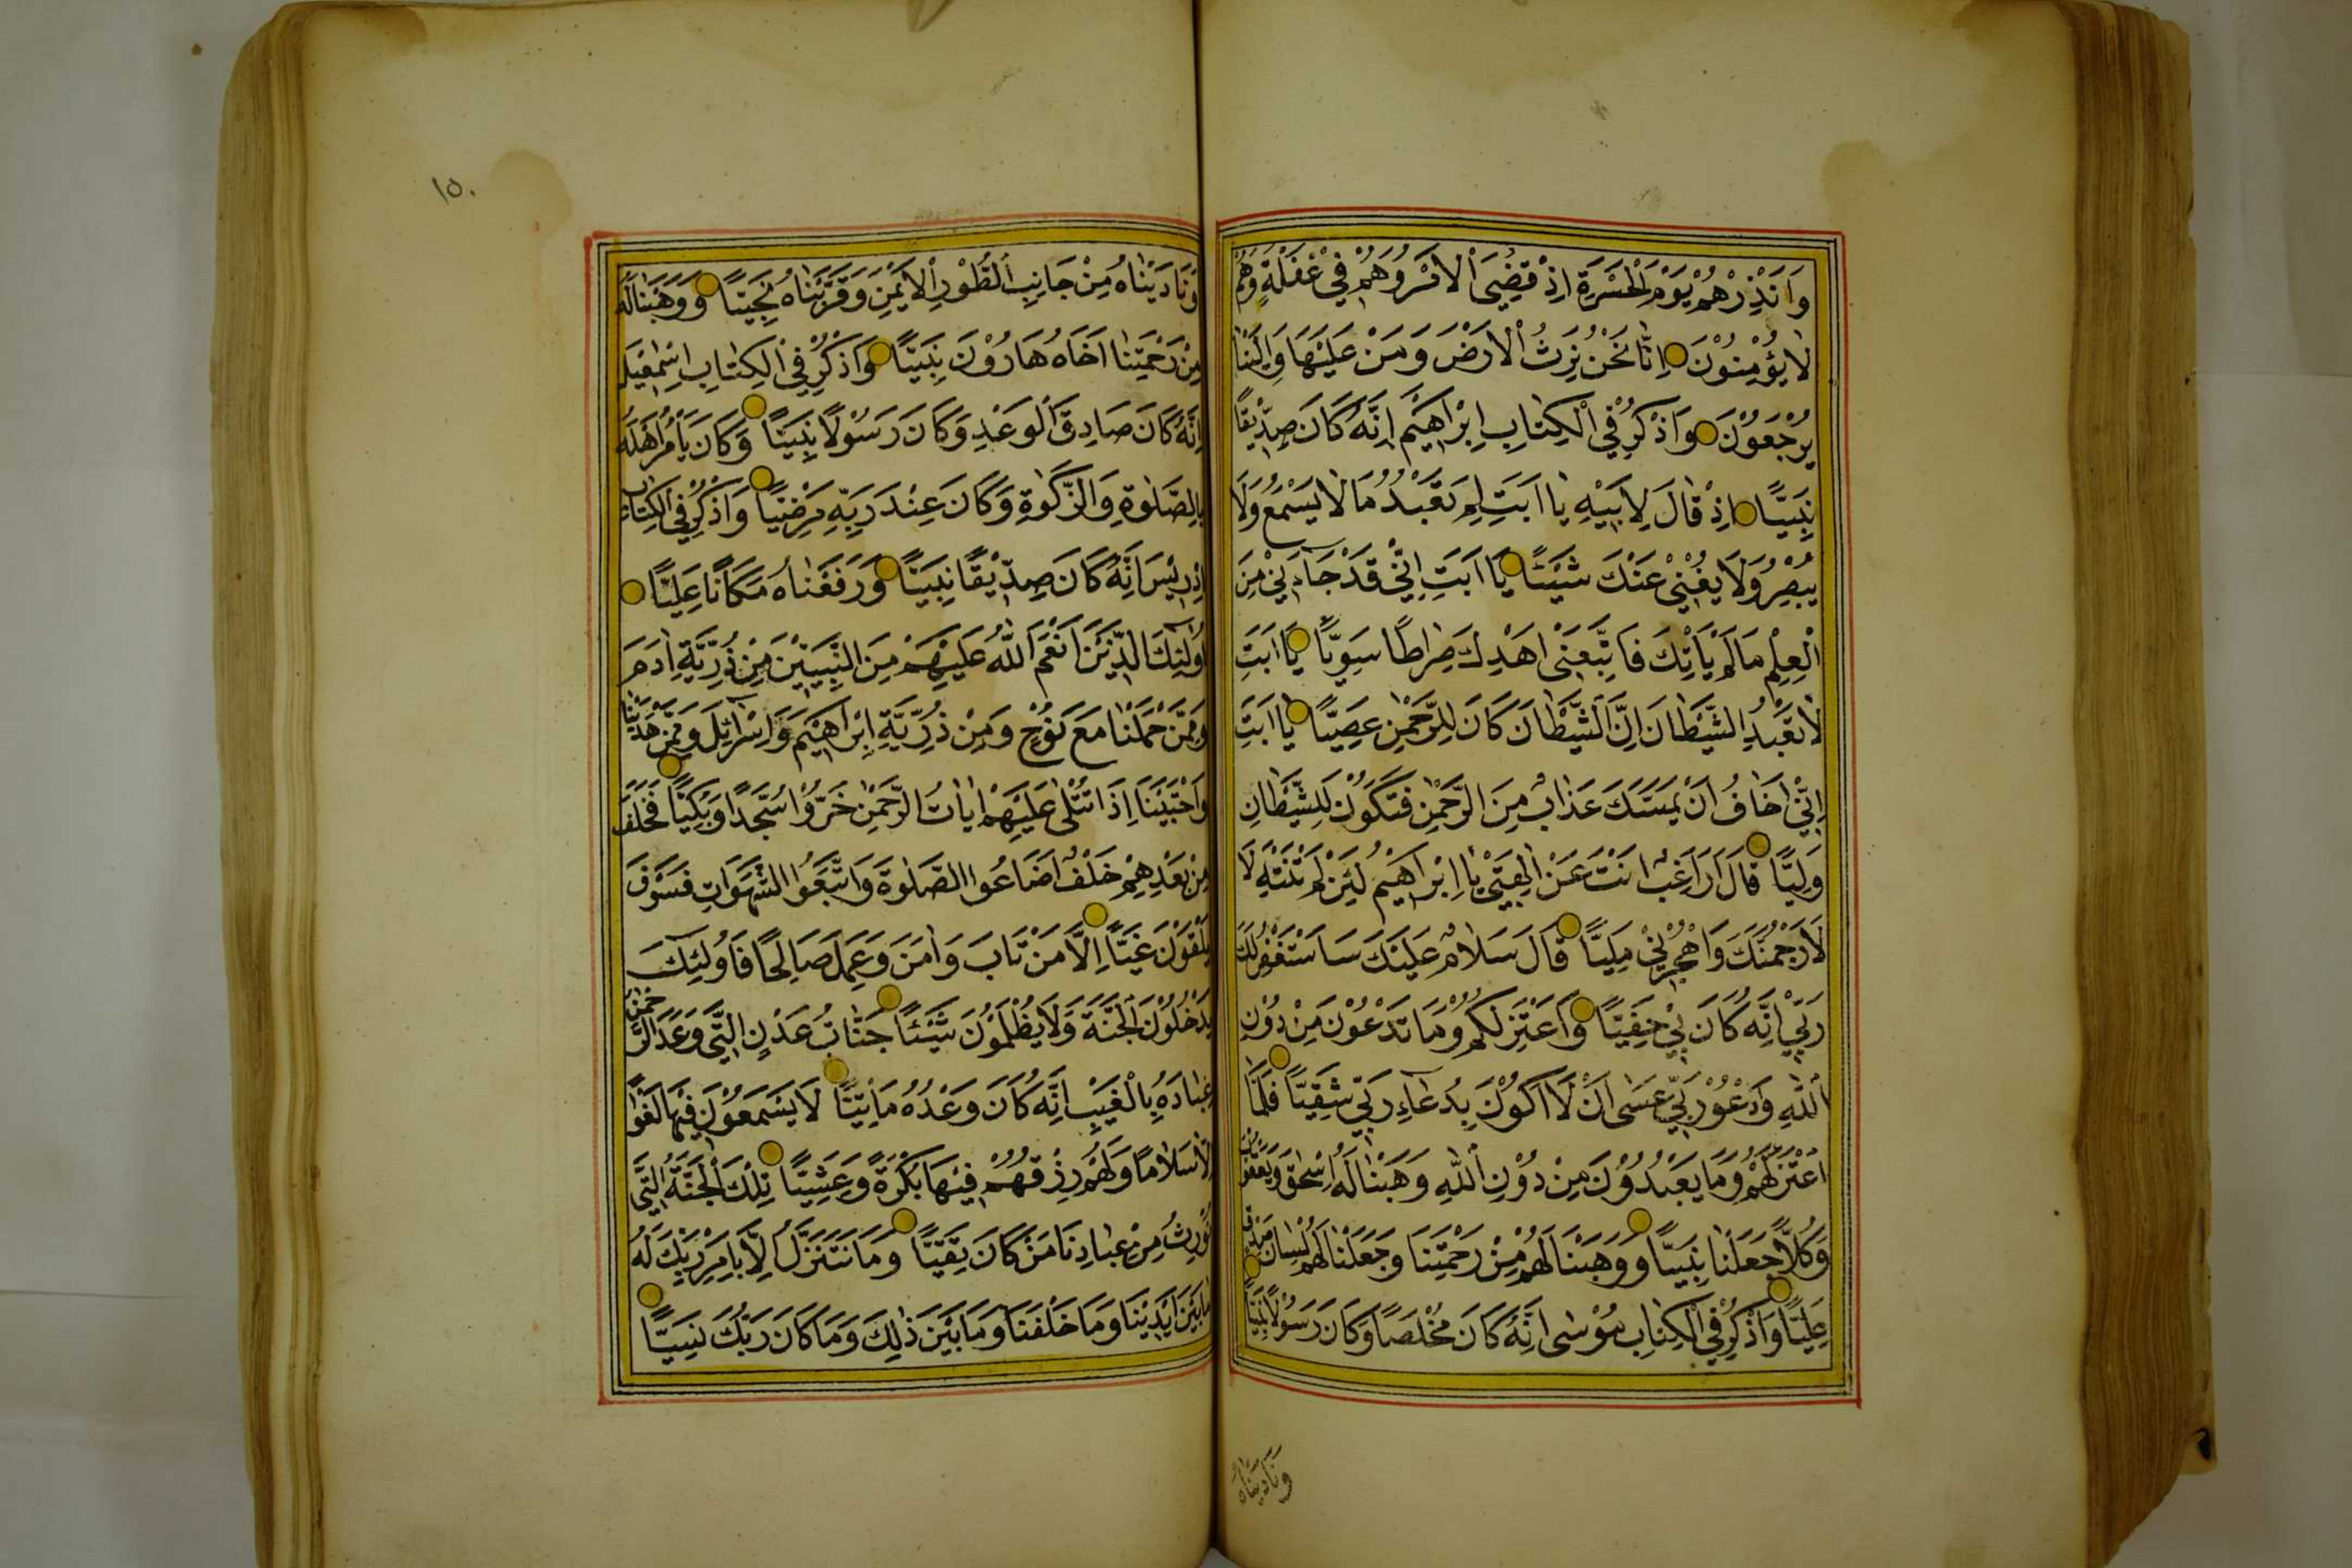 وَاَنْذِرْهُمْ يَوْمَ الْحَسْرَةِ اِذْ قُضِيَ الْاَمْرُ وَهُمْ فِيْ غَفْلَةٍ وَهُمْ
لَا يُؤْمِنُوْنَ اِنَّا نَحْنُ نَرِثُ الْاَرْضَ وَمَنْ عَلَيْهَا وَاِلَيْنَا
يُرْجَعُوْنَ وَاذْكُرْ فِي الْكِتَابِ اِبْرَاهِيْمَ اِنَّهُ كَانَ صِدِّيْقًا
نَبِيًّا اِذْ قَالَ لِاَبِيْهِ يَا اَبَتِ لِمَ تَعْبُدُ مَا لَا يَسْمَعُ وَلَا
يُبْصِرُ وَلَا يُغْنِيْ عَنْكَ شَيْئًا يَا اَبَتِ اِنِّيْ قَدْ جَاءَنِيْ مِنَ
الْعِلْمِ مَا لَمْ يَأْتِكَ فَاتَّبِعْنِيْ اَهْدِكَ صِرَاطًا سَوِيًّا يَا اَبَتِ
لَا تَعْبُدِ الشَّيْطَانَ اِنَّ الشَّيْطَانَ كَانَ لِلرَّحْمٰنِ عَصِيًّا يَا اَبَتِ
اِنِّيْ اَخَافُ اَنْ يَمَسَّكَ عَذَابٌ مِنَ الرَّحْمٰنِ فَتَكُوْنَ لِلشَّيْطَانِ
وَلِيًّا قَالَ اَرَاغِبٌ اَنْتَ عَنْ اٰلِهَتِيْ يَا اِبْرَاهِيْمُ لَئِنْ لَمْ تَنْتَهِ لَا
لَاَرْجُمَنَّكَ وَاهْجُرْنِيْ مَلِيًّا قَالَ سَلَامٌ عَلَيْكَ سَاَسْتَغْفِرُ لَكَ
رَبِّيْ اِنَّهُ كَانَ بِيْ حَفِيًّا وَاَعْتَزِلُكُمْ وَمَا تَدْعُوْنَ مِنْ دُوْنِ
اللّٰهِ وَاَدْعُوْ رَبِّيْ عَسٰى اَنْ لَا اَكُوْنَ بِدُعَاءِ رَبِّيْ شَقِيًّا فَلَمَّا
اعْتَزَلَهُمْ وَمَا يَعْبُدُوْنَ مِنْ دُوْنِ اللّٰهِ وَهَبْنَا لَهُ اِسْحٰقَ وَيَعْقُوْبَ
وَكُلًّا جَعَلْنَا نَبِيًّا وَوَهَبْنَا لَهُمْ مِنْ رَحْمَتِنَا وَجَعَلْنَا لَهُمْ لِسَانَ صِدْقٍ
عَلِيًّا وَاذْكُرْ فِي الْكِتَابِ مُوْسٰى اِنَّهُ كَانَ مُخْلَصًا وَكَانَ رَسُوْلًا نَبِيًّا
وَنَادَيْنَاهُ
١٥٠
وَنَادَيْنَاهُ مِنْ جَانِبِ الطُّوْرِ الْاَيْمَنِ وَقَرَّبْنَاهُ نَجِيًّا وَوَهَبْنَا لَهُ
مِنْ رَحْمَتِنَا اَخَاهُ هَارُوْنَ نَبِيًّا وَاذْكُرْ فِي الْكِتَابِ اِسْمٰعِيْلَ
اِنَّهُ كَانَ صَادِقَ الْوَعْدِ وَكَانَ رَسُوْلًا نَبِيًّا وَكَانَ يَأْمُرُ اَهْلَهُ
بِالصَّلٰوةِ وَالزَّكٰوةِ وَكَانَ عِنْدَ رَبِّهِ مَرْضِيًّا وَاذْكُرْ فِي الْكِتَابِ
اِدْرِيْسَ اِنَّهُ كَانَ صِدِّيْقًا نَبِيًّا وَرَفَعْنَاهُ مَكَانًا عَلِيًّا
اُولٰئِكَ الَّذِيْنَ اَنْعَمَ اللّٰهُ عَلَيْهِمْ مِنَ النَّبِيِّيْنَ مِنْ ذُرِّيَّةِ اٰدَمَ
وَمِمَّنْ حَمَلْنَا مَعَ نُوْحٍ وَمِنْ ذُرِّيَّةِ اِبْرَاهِيْمَ وَاِسْرَائِيْلَ وَمِمَّنْ هَدَيْنَا
وَاجْتَبَيْنَا اِذَا تُتْلٰى عَلَيْهِمْ اٰيَاتُ الرَّحْمٰنِ خَرُّوْا سُجَّدًا وَبُكِيًّا فَخَلَفَ
مِنْ بَعْدِهِمْ خَلْفٌ اَضَاعُوا الصَّلٰوةَ وَاتَّبَعُوا الشَّهَوَاتِ فَسَوْفَ
يَلْقَوْنَ غَيًّا اِلَّا مَنْ تَابَ وَاٰمَنَ وَعَمِلَ صَالِحًا فَاُولٰئِكَ
يَدْخُلُوْنَ الْجَنَّةَ وَلَا يُظْلَمُوْنَ شَيْئًا جَنَّاتِ عَدْنٍ الَّتِيْ وَعَدَ الرَّحْمٰنُ
عِبَادَهُ بِالْغَيْبِ اِنَّهُ كَانَ وَعْدُهُ مَأْتِيًّا لَا يَسْمَعُوْنَ فِيْهَا لَغْوًا
اِلَّا سَلَامًا وَلَهُمْ رِزْقُهُمْ فِيْهَا بُكْرَةً وَعَشِيًّا تِلْكَ الْجَنَّةُ الَّتِيْ
نُوْرِثُ مِنْ عِبَادِنَا مَنْ كَانَ تَقِيًّا وَمَا نَتَنَزَّلُ اِلَّا بِاَمْرِ رَبِّكَ لَهُ
مَا بَيْنَ اَيْدِيْنَا وَمَا خَلْفَنَا وَمَا بَيْنَ ذٰلِكَ وَمَا كَانَ رَبُّكَ نَسِيًّا